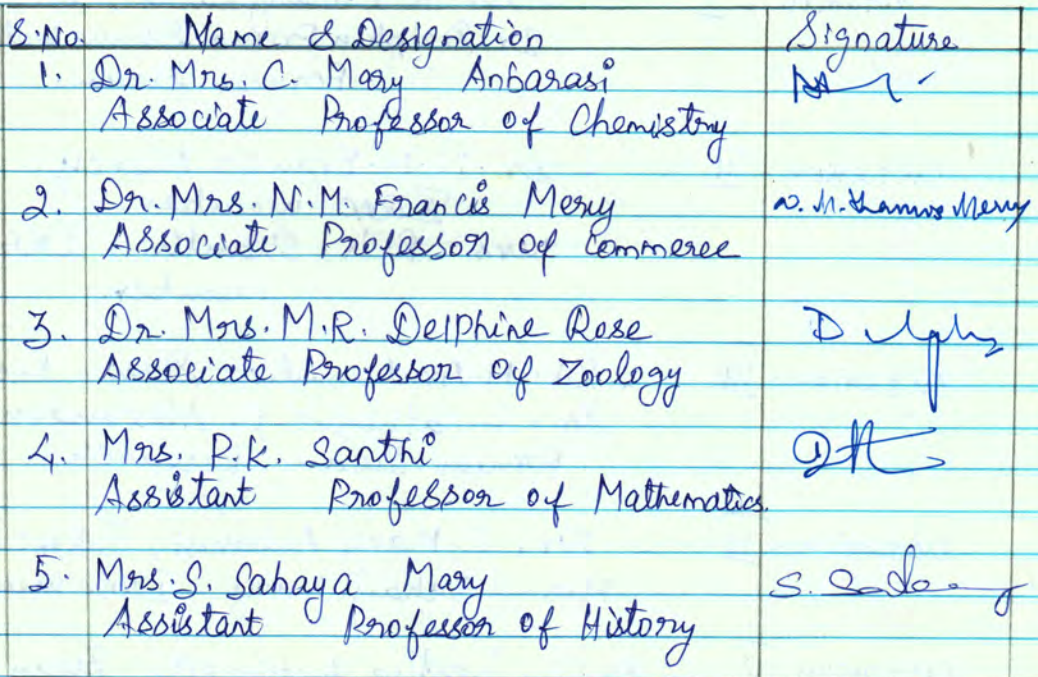 S.No. Name & Designation Signature
1. Dr. Mrs. C. Mary Anbarasi
Associate Professor of Chemistry
2. Dr. Mrs. N.M. Francis Mery N. M. Francis Mery
Associate Professor of Commerce
3. Dr. Mrs. M.R. Delphine Rose
Associate Professor of Zoology
4. Mrs. P.K. Santhi
Assistant Professor of Mathematics.
5. Mrs. S. Sahaya Mary
Assistant Professor of History